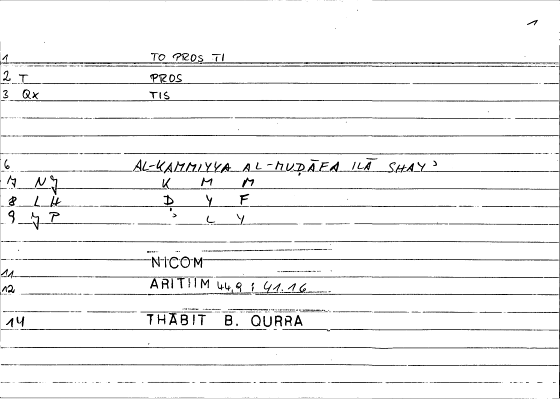 1
1 TO PROS TI
2 T PROS
3 Qx TIS
6 AL-KAMMIYYA AL-MUḌĀFA ILĀ SHAYʾ
K M M
8 L H Ḍ Y F
9 ʾ L Y
NICOM
11
12 ARITIIM 44,9 : 41.16
14 THĀBIT B. QURRA